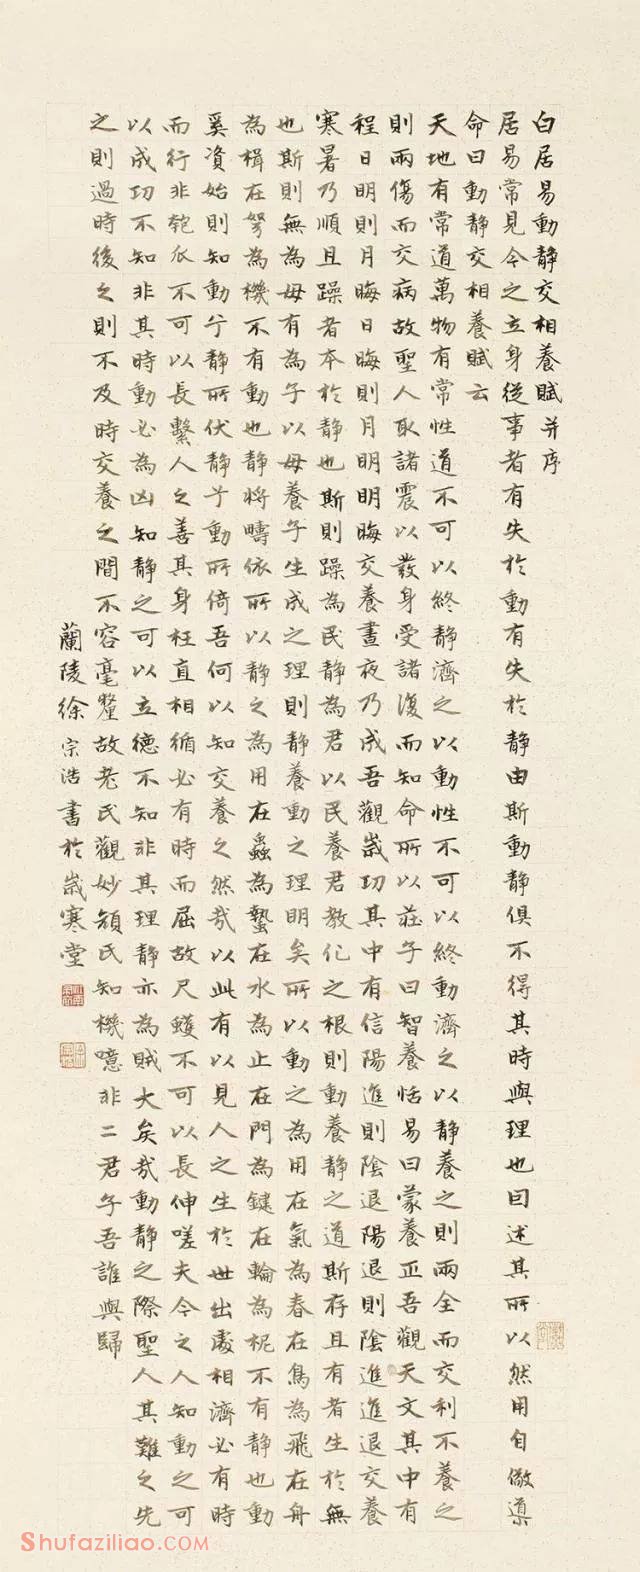 白居易動靜交相養賦并序
居易常見今之立身從事者有失於動有失於靜由斯動靜俱不得其時與理也因述其所以然用自儆導
命曰動靜交相養賦云
天地有常道萬物有常性道不可以終靜濟之以動性不可以終動濟之以靜養之則兩全而交利不養之
則兩傷而交病故聖人取諸震以發身受諸復而知命所以莊子曰智養恬易曰蒙養正吾觀天文其中有
程日明則月晦日晦則月明明晦交養晝夜乃成吾觀歲功其中有信陽進則陰退陽退則陰進進退交養
寒暑乃順且躁者本於靜也斯則躁為民靜為君以民養君教化之根則動養靜之道斯存且有者生於無
也斯則無為母有為子以母養子生成之理則靜養動之理明矣所以動之為用在氣為春在鳥為飛在舟
為楫在弩為機不有動也靜將疇依所以靜之為用在蟲為蟄在水為止在門為鍵在輪為柅不有靜也動
奚資始則知動兮靜所伏靜兮動所倚吾何以知交養之然哉以此有以見人之生於世出處相濟必有時
而行非匏瓜不可以長繫人之善其身枉直相循必有時而屈故尺蠖不可以長伸嗟夫今之人知動之可
以成功不知非其時動必為凶知靜之可以立德不知非其理靜亦為賊大矣哉動靜之際聖人其難之先
之則過時後之則不及時交養之間不容毫釐故老氏觀妙顏氏知機噫非二君子吾誰與歸
蘭陵徐宗浩書於歲寒堂
Shufaziliao.com